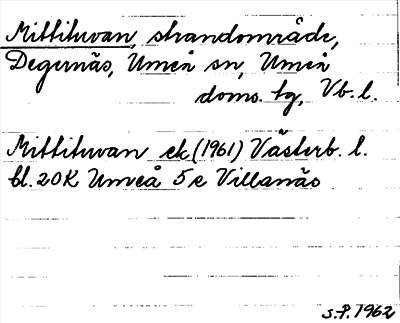 Mittituvan, strandområde,
Degernäs, Umeå sn, Umeå
doms. tg, Vb. l.
Mittituvan ek (1961) Västerb. l.
bl. 20K Umeå 5c Villanäs
S.P. 1962